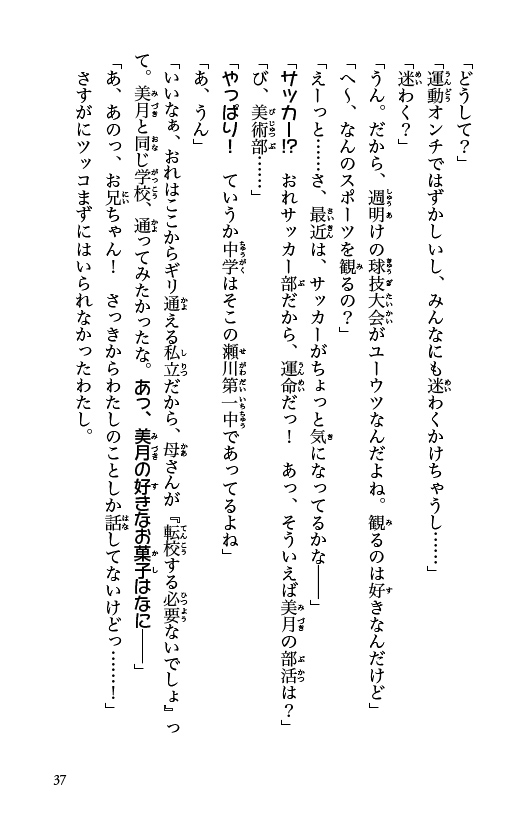 「どうして？」
「運動オンチではずかしいし、みんなにも迷わくかけちゃうし……」
「迷わく？」
「うん。だから、週明けの球技大会がユーウツなんだよね。観るのは好きなんだけど」
「へ～、なんのスポーツを観るの？」
「えーっと……さ、最近は、サッカーがちょっと気になってるかな――」
「サッカー!?　おれサッカー部だから、運命だっ！　あっ、そういえば美月の部活は？」
「び、美術部……」
「やっぱり！　ていうか中学はそこの瀬川第一中であってるよね」
「あ、うん」
「いいなぁ、おれはここからギリ通える私立だから、母さんが『転校する必要ないでしょ』っ
て。美月と同じ学校、通ってみたかったな。あっ、美月の好きなお菓子はなに――」
「あ、あのっ、お兄ちゃん！　さっきからわたしのことしか話してないけどっ……！」
さすがにツッコまずにはいられなかったわたし。
37